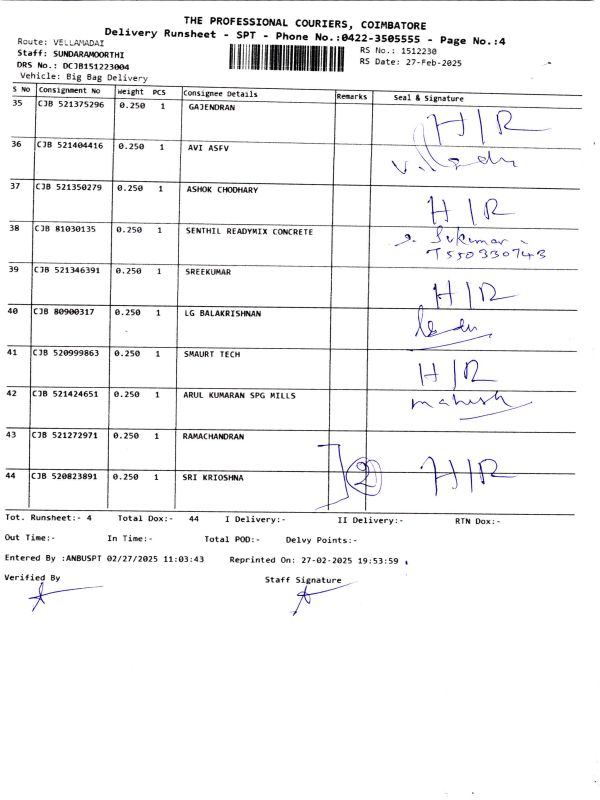 THE PROFESSIONAL COURIERS, COIMBATORE
Delivery Runsheet - SPT - Phone No.:0422-3505555 - Page No.:4
Route: VELLAMADAI
Staff: SUNDARAMOORTHI
RS No.: 1512230
DRS No.: DCJB151223004
RS Date: 27-Feb-2025
Vehicle: Big Bag Delivery
S No Consignment No Weight PCS Consignee Details Remarks Seal & Signature
35 CJB 521375296 0.250 1 GAJENDRAN H/R
36 CJB 521404416 0.250 1 AVI ASFV
37 CJB 521350279 0.250 1 ASHOK CHODHARY H/R
38 CJB 81030135 0.250 1 SENTHIL READYMIX CONCRETE Sukumar
7550330743
39 CJB 521346391 0.250 1 SREEKUMAR H/R
40 CJB 80900317 0.250 1 LG BALAKRISHNAN
41 CJB 520999863 0.250 1 SMAURT TECH H/R
42 CJB 521424651 0.250 1 ARUL KUMARAN SPG MILLS mahesh
43 CJB 521272971 0.250 1 RAMACHANDRAN
44 CJB 520823891 0.250 1 SRI KRIOSHNA 2 H/R
Tot. Runsheet:- 4 Total Dox:- 44 I Delivery:- II Delivery:- RTN Dox:-
Out Time:- In Time:- Total POD:- Delvy Points:-
Entered By :ANBUSPT 02/27/2025 11:03:43 Reprinted On: 27-02-2025 19:53:59
Verified By Staff Signature